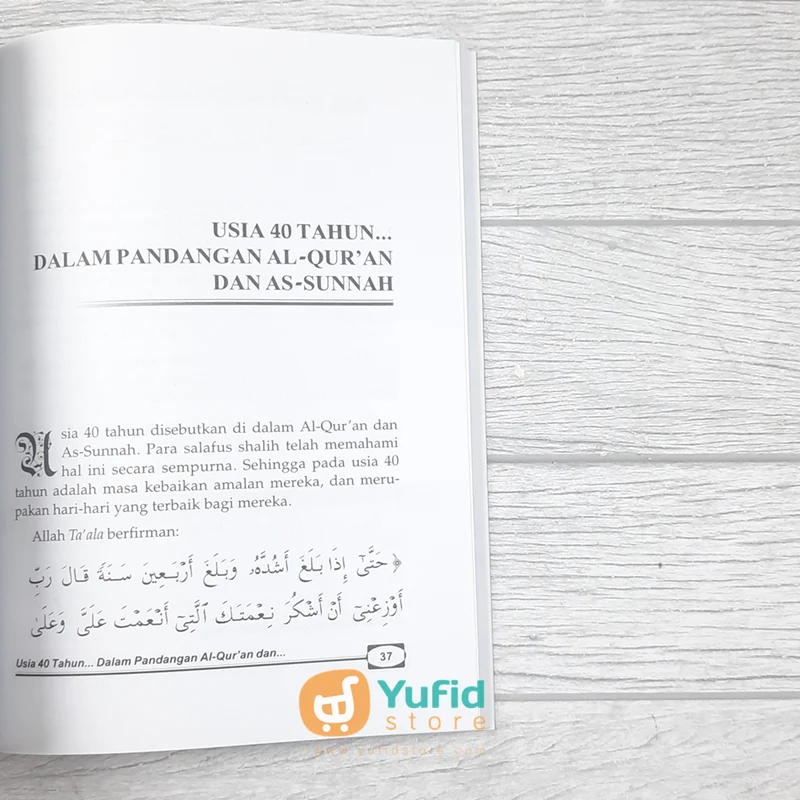 USIA 40 TAHUN...
DALAM PANDANGAN AL-QUR'AN
DAN AS-SUNNAH
Usia 40 tahun disebutkan di dalam Al-Qur'an dan
As-Sunnah. Para salafus shalih telah memahami
hal ini secara sempurna. Sehingga pada usia 40
tahun adalah masa kebaikan amalan mereka, dan meru-
pakan hari-hari yang terbaik bagi mereka.
Allah Ta'ala berfirman:
﴿ حَتَّىٰٓ إِذَا بَلَغَ أَشُدَّهُۥ وَبَلَغَ أَرْبَعِينَ سَنَةً قَالَ رَبِّ
أَوْزِعْنِىٓ أَنْ أَشْكُرَ نِعْمَتَكَ ٱلَّتِىٓ أَنْعَمْتَ عَلَىَّ وَعَلَىٰ
Usia 40 Tahun... Dalam Pandangan Al-Qur'an dan...
37
Yufid
store
www.yufidstore.com